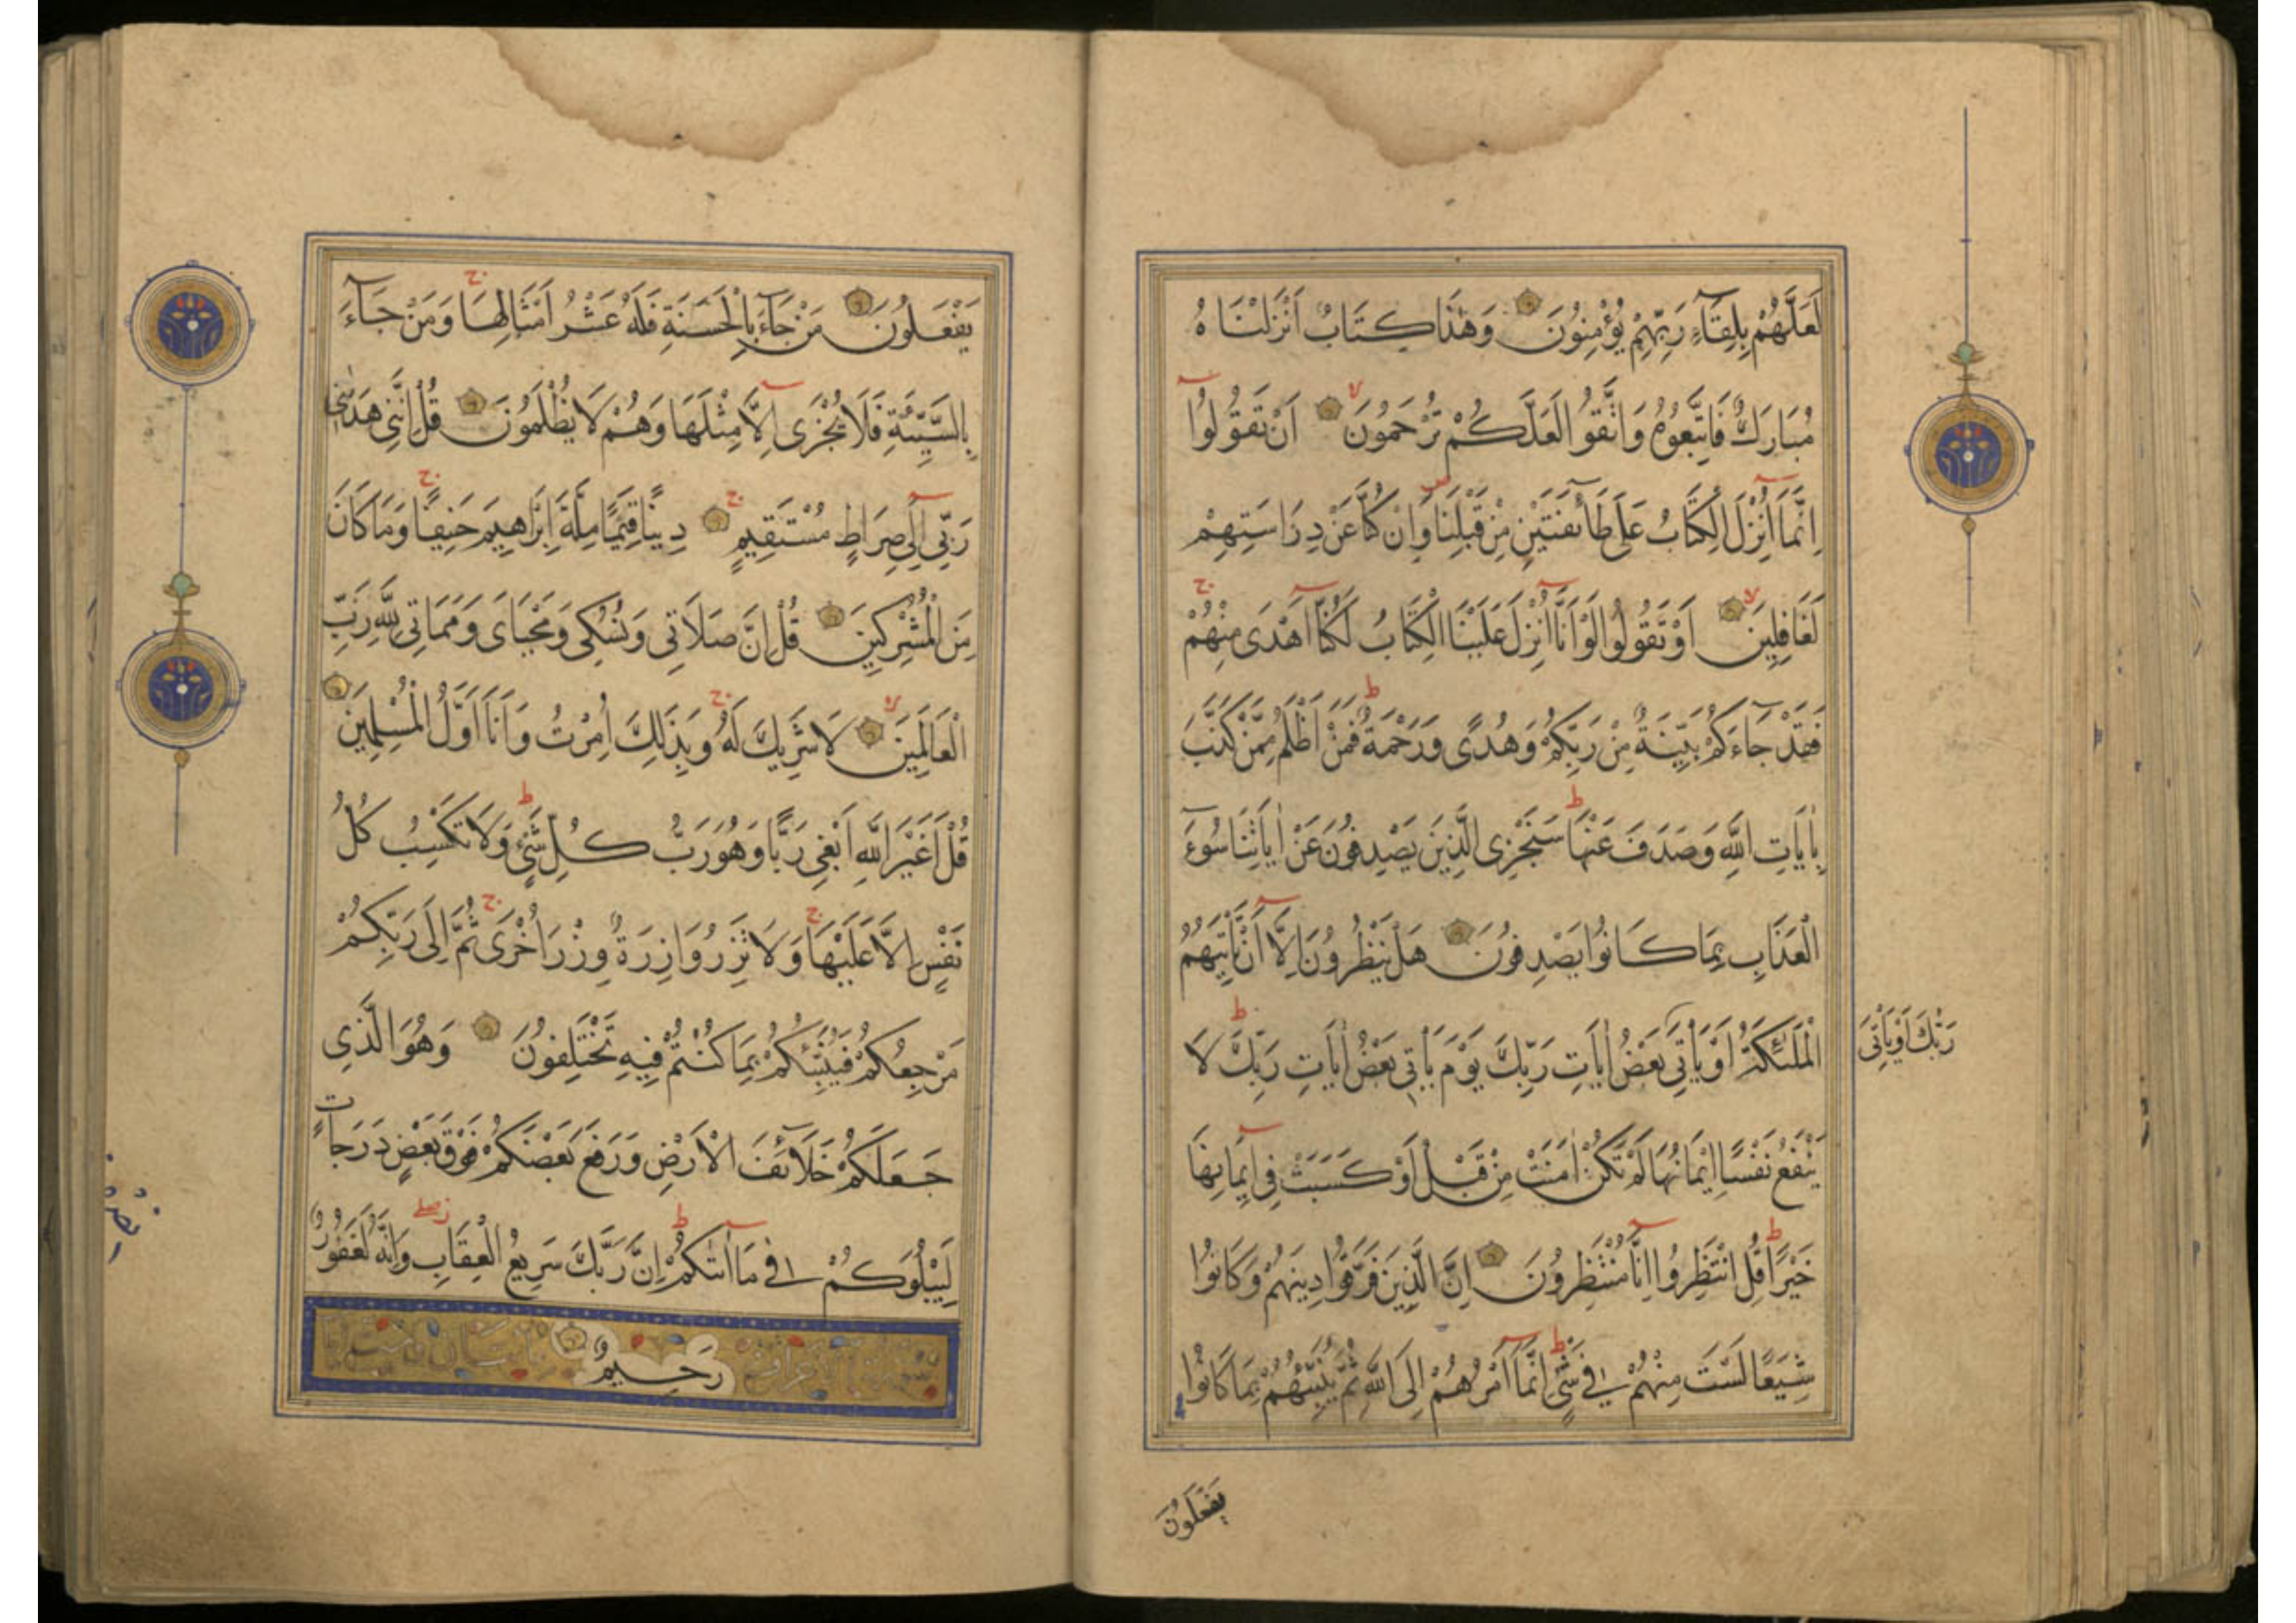 لَعَلَّهُمْ بِلِقَآءِ رَبِّهِمْ يُؤْمِنُونَ وَهٰذَا كِتَابٌ اَنْزَلْنَاهُ
مُبَارَكٌ فَاتَّبِعُوهُ وَاتَّقُوا لَعَلَّكُمْ تُرْحَمُونَ اَنْ تَقُولُوٓا
اِنَّمَآ اُنْزِلَ الْكِتَابُ عَلٰى طَآئِفَتَيْنِ مِنْ قَبْلِنَا وَاِنْ كُنَّا عَنْ دِرَاسَتِهِمْ
لَغَافِلِينَ اَوْ تَقُولُوا لَوْ اَنَّآ اُنْزِلَ عَلَيْنَا الْكِتَابُ لَكُنَّآ اَهْدٰى مِنْهُمْ
فَقَدْ جَآءَكُمْ بَيِّنَةٌ مِنْ رَبِّكُمْ وَهُدًى وَرَحْمَةٌ فَمَنْ اَظْلَمُ مِمَّنْ كَذَّبَ
بِاٰيَاتِ اللّٰهِ وَصَدَفَ عَنْهَا سَنَجْزِى الَّذِينَ يَصْدِفُونَ عَنْ اٰيَاتِنَا سُوٓءَ
الْعَذَابِ بِمَا كَانُوا يَصْدِفُونَ هَلْ يَنْظُرُونَ اِلَّآ اَنْ تَاْتِيَهُمُ
الْمَلٰٓئِكَةُ اَوْ يَاْتِىَ بَعْضُ اٰيَاتِ رَبِّكَ يَوْمَ يَاْتِى بَعْضُ اٰيَاتِ رَبِّكَ لَا
رَبُّكَ اَوْ يَاْتِىَ
يَنْفَعُ نَفْسًا اِيمَانُهَا لَمْ تَكُنْ اٰمَنَتْ مِنْ قَبْلُ اَوْ كَسَبَتْ فِىٓ اِيمَانِهَا
خَيْرًا قُلِ انْتَظِرُوٓا اِنَّا مُنْتَظِرُونَ اِنَّ الَّذِينَ فَرَّقُوا دِينَهُمْ وَكَانُوا
شِيَعًا لَسْتَ مِنْهُمْ فِى شَىْءٍ اِنَّمَآ اَمْرُهُمْ اِلَى اللّٰهِ ثُمَّ يُنَبِّئُهُمْ بِمَا كَانُوا
يَفْعَلُونَ
يَفْعَلُونَ مَنْ جَآءَ بِالْحَسَنَةِ فَلَهُ عَشْرُ اَمْثَالِهَا وَمَنْ جَآءَ
بِالسَّيِّئَةِ فَلَا يُجْزٰىٓ اِلَّا مِثْلَهَا وَهُمْ لَا يُظْلَمُونَ قُلْ اِنَّنِى هَدٰينِى
رَبِّىٓ اِلٰى صِرَاطٍ مُسْتَقِيمٍ دِينًا قِيَمًا مِلَّةَ اِبْرَاهِيمَ حَنِيفًا وَمَا كَانَ
مِنَ الْمُشْرِكِينَ قُلْ اِنَّ صَلَاتِى وَنُسُكِى وَمَحْيَاىَ وَمَمَاتِى لِلّٰهِ رَبِّ
الْعَالَمِينَ لَا شَرِيكَ لَهُ وَبِذٰلِكَ اُمِرْتُ وَاَنَا اَوَّلُ الْمُسْلِمِينَ
قُلْ اَغَيْرَ اللّٰهِ اَبْغِى رَبًّا وَهُوَ رَبُّ كُلِّ شَىْءٍ وَلَا تَكْسِبُ كُلُّ
نَفْسٍ اِلَّا عَلَيْهَا وَلَا تَزِرُ وَازِرَةٌ وِزْرَ اُخْرٰى ثُمَّ اِلٰى رَبِّكُمْ
مَرْجِعُكُمْ فَيُنَبِّئُكُمْ بِمَا كُنْتُمْ فِيهِ تَخْتَلِفُونَ وَهُوَ الَّذِى
جَعَلَكُمْ خَلَآئِفَ الْاَرْضِ وَرَفَعَ بَعْضَكُمْ فَوْقَ بَعْضٍ دَرَجَاتٍ
لِيَبْلُوَكُمْ فِى مَآ اٰتٰيكُمْ اِنَّ رَبَّكَ سَرِيعُ الْعِقَابِ وَاِنَّهُ لَغَفُورٌ
رَحِيمٌ